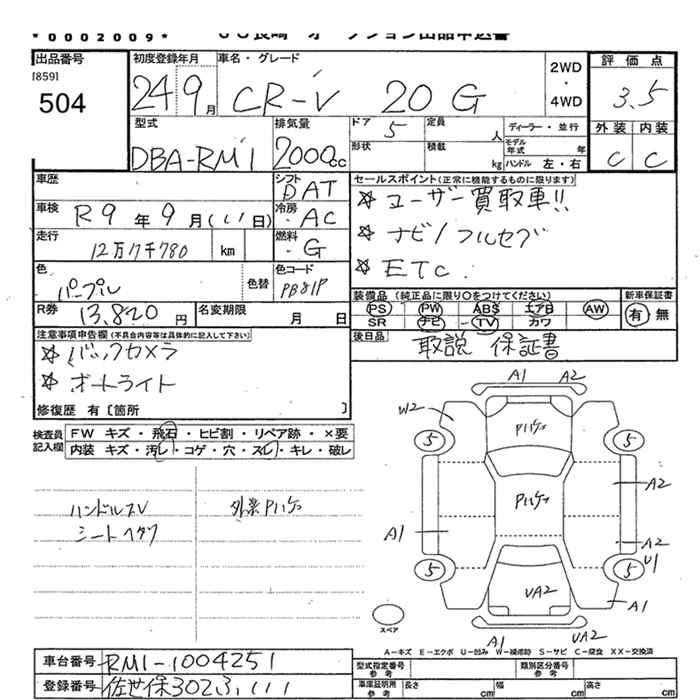 *0002009*
出品番号
[859]
504
初度登録年月
24 9月
車名・グレード
CR-V 20G
2WD
・
4WD
評価点
3.5
外装 内装
C C
型式
DBA-RM1
排気量
2000cc
ドア
5
定員
人
形状
積載
kg
ディーラー・並行
モデル年式 年
ハンドル 左・右
車歴
シフト
DAT
車検
R9年9月(11日)
冷房
AC
走行
12万7千780 km
燃料
G
色
パープル
色替
色コード
PB81P
R券
13,820円
名変期限
月 日
セールスポイント(正常に機能するものに限ります)
☆ ユーザー買取車!!
☆ ナビ/フルセグ
☆ ETC.
装備品 (純正品に限り○をつけてください)
PS PW ABS エアB AW
SR ナビ TV カワ
新車保証書
有 無
後日品
取説 保証書
注意事項申告欄(不具合内容等は具体的に記入して下さい)
☆ バックカメラ
☆ オートライト
修復歴 有〔箇所 〕
検査員記入欄
FW キズ・飛石・ヒビ割・リペア跡・×要
内装 キズ・汚レ・コゲ・穴・スレ・キレ・破レ
ハンドルスレ
シートヘタリ
外装Pハゲ
A1 A2
W2
Pハゲ
5 5
Pハゲ
A2
A1
A2
5 5
U1
UA2
A1
A1 UA2
スペア
A-キズ E-エクボ U-凹み W-補修跡 S-サビ C-腐食 XX-交換済
車台番号
RM1-1004251
登録番号
佐世保302ふ111
型式指定番号
参考
類別区分番号
参考
車庫証明用
参考
長さ cm
幅 cm
高さ cm